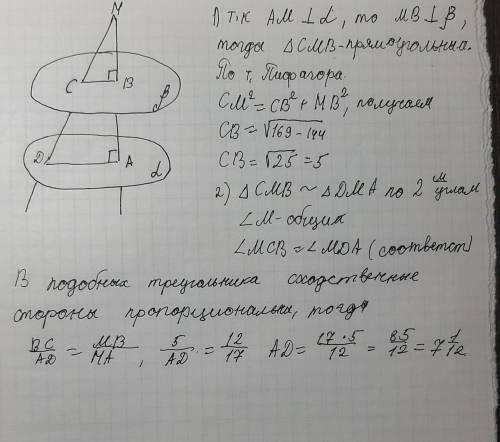 М
С
В
β
D
А
α
1) т.к АМ ⊥ α, то МВ ⊥ β,
тогда △ СМВ - прямоугольный.
По т. Пифагора
СМ² = СВ² + МВ², получаем
СВ = √169 - 144
СВ = √25 = 5
2) △ СМВ ~ △ DMA по 2 м углам
∠М - общий
∠МСВ = ∠MDA (соответст)
В подобных треугольника сходственные
стороны пропорциональны, тогда
BC/AD = MB/MA, 5/AD = 12/17 AD = 17·5/12 = 85/12 = 7 1/12